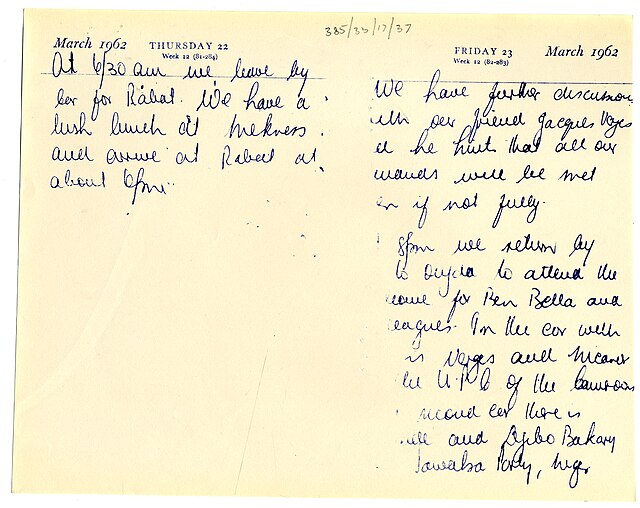 385/33/17/37
March 1962 THURSDAY 22
Week 12 (81-284)
At 6/30 am we leave by
car for Rabat. We have a
lush lunch at Mekness.
and arrive at Rabat at
about 6pm.
FRIDAY 23 March 1962
Week 12 (82-283)
We have further discussions
our friend Jacques Verges
he hints that all our
will be met
if not fully.
8pm we return by
to Oujda to attend the
for Ben Bella and
eagues. In the car with
is Verges and
the U.P.C of the
second car there is
and Djibo Bakary
Sawaba Party, Niger